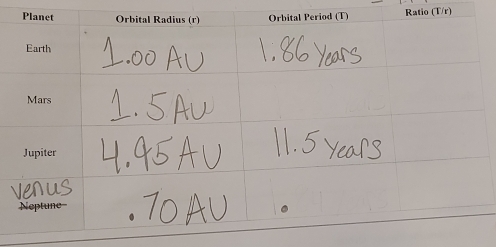 Planet Orbital Radius (r) Orbital Period (T) Ratio (T/r)
Earth 1.00 AU 1.86 Years
Mars 1.5 AU
Jupiter 4.95 AU 11.5 Years
Venus
Neptune .70 AU .